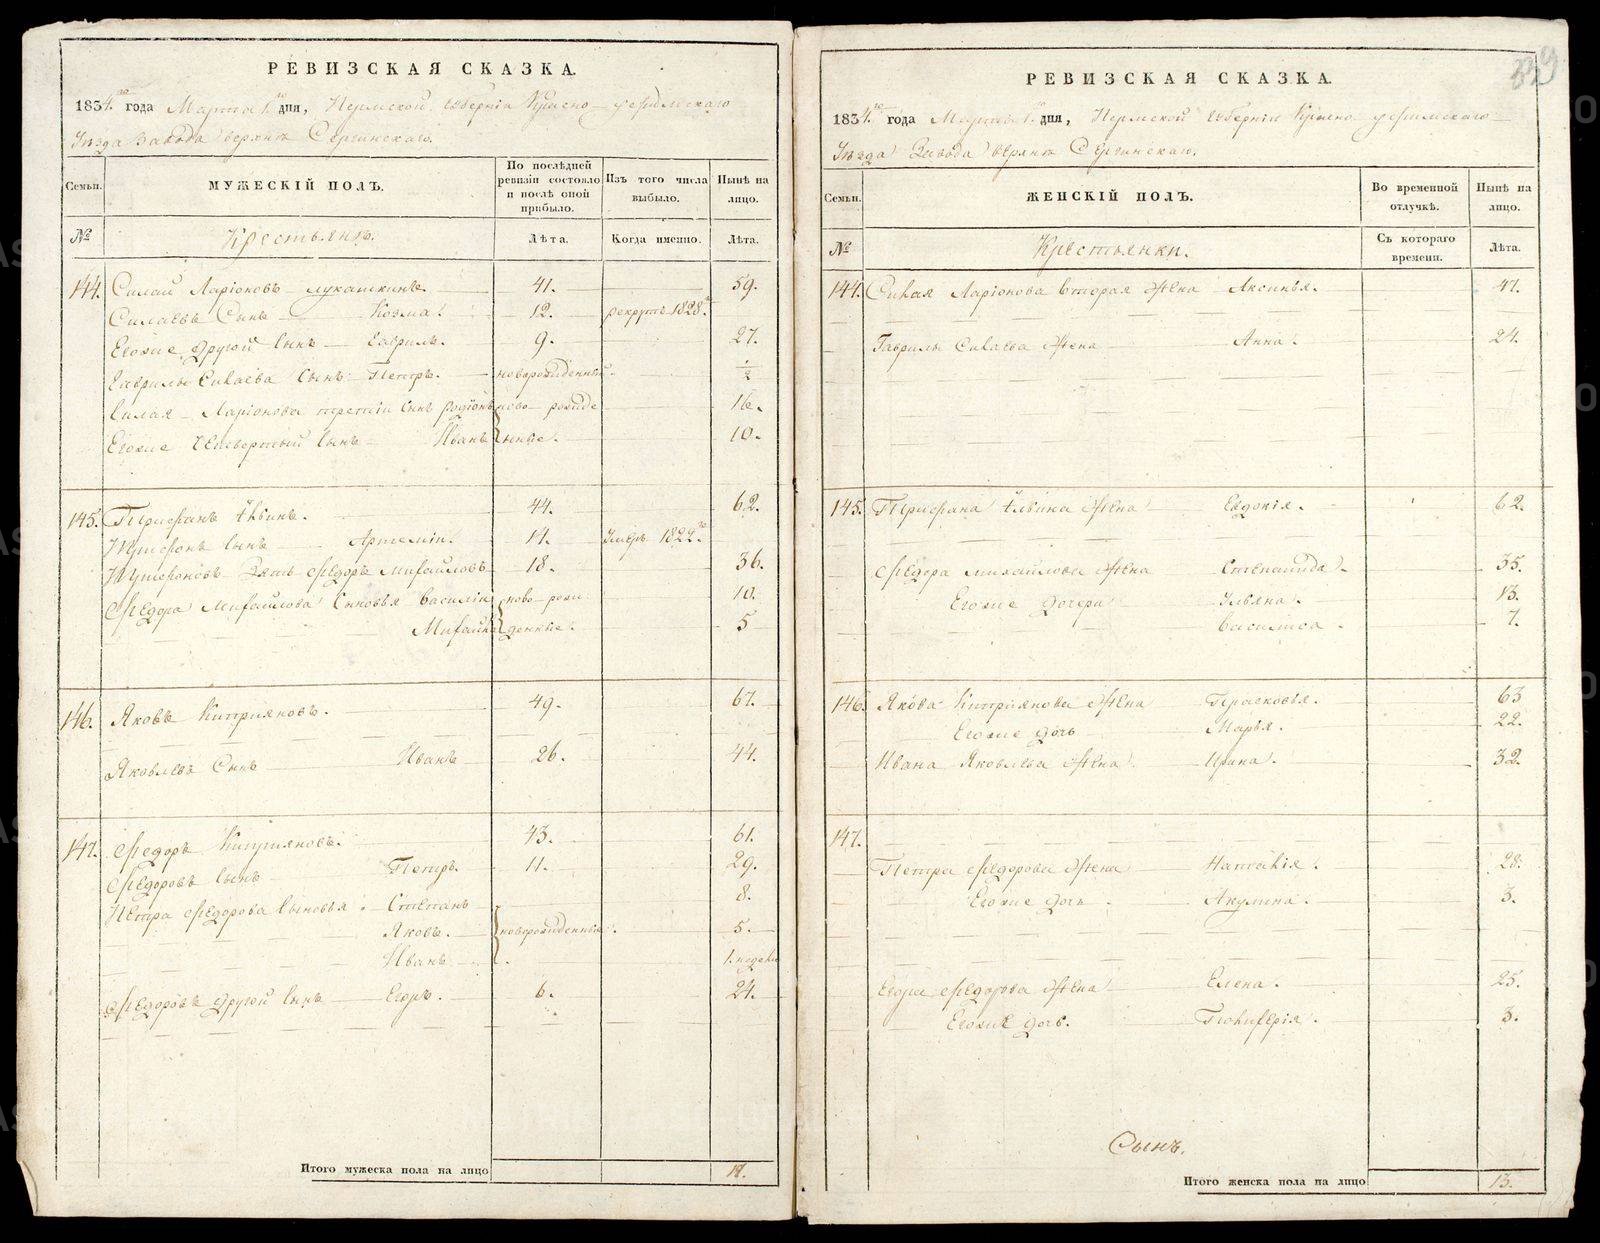 РЕВИЗСКАЯ СКАЗКА.
1834.го года Марта 1.го дня, Пермской губерніи Красно-уфимскаго
Уѣзда Завода верхнѣ Сергинскаго.
Семьи. МУЖЕСКІЙ ПОЛЪ. По послѣдней ревизіи состояло и послѣ оной прибыло. Изъ того числа выбыло. Нынѣ на лицо.
№ Крестьянъ. Лѣта. Когда именно. Лѣта.
144. Силай Ларіоновъ Лукашкинъ. 41. 59.
Силаевъ Сынъ Козма. 12. рекрутъ 1828.го
Егоже другой сынъ Гаврилъ. 9. 27.
Гаврилы Силаева Сынъ Петръ. новорожденный. 1/2
Силая Ларіонова третій сынъ Родіонъ ново-рожде 16.
Егоже четвертый сынъ Иванъ нные. 10.
145. Трифанъ 44. 62.
сынъ Артемій. 14. Умеръ 1822.го
Зять Федоръ Михайловъ 18. 36.
Федора Михайлова Сыновья Василій ново-рож 10.
Михайла денные. 5
146. Яковъ Кипріяновъ. 49. 67.
Яковлевъ Сынъ Иванъ 26. 44.
147. Федоръ Кипріяновъ. 43. 61.
Федоровъ сынъ Петръ. 11. 29.
Петра Федорова сыновья Степанъ 8.
Яковъ. новорожденные. 5.
Иванъ 1. недели
Федоровъ другой сынъ Егоръ. 6. 24.
Итого мужеска пола на лицо
РЕВИЗСКАЯ СКАЗКА.
1834.го года Марта 1.го дня, Пермской губерніи Красно уфимскаго
Уѣзда Завода верхнѣ Сергинскаго.
Семьи. ЖЕНСКІЙ ПОЛЪ. Во временной отлучкѣ. Нынѣ на лицо.
№ Крестьянки. Съ котораго времени. Лѣта.
144. Силая Ларіонова вторая жена Аксинья. 47.
Гаврилы Силаева жена Анна. 24.
145. Трифана жена Евдокія. 62.
Федора Михайлова жена Степанида. 35.
Егоже дочери Ульяна. 13.
Василиса. 7.
146. Якова Кипріянова жена Прасковья. 63
Егоже дочь Марья. 22.
Ивана Яковлева жена Ирина. 32.
147.
Петра Федорова жена Наталія. 28.
Егоже дочь Акулина. 3.
Егора Федорова жена Елена. 25.
Егоже дочь. 3.
Сынъ.
Итого женска пола на лицо 13.